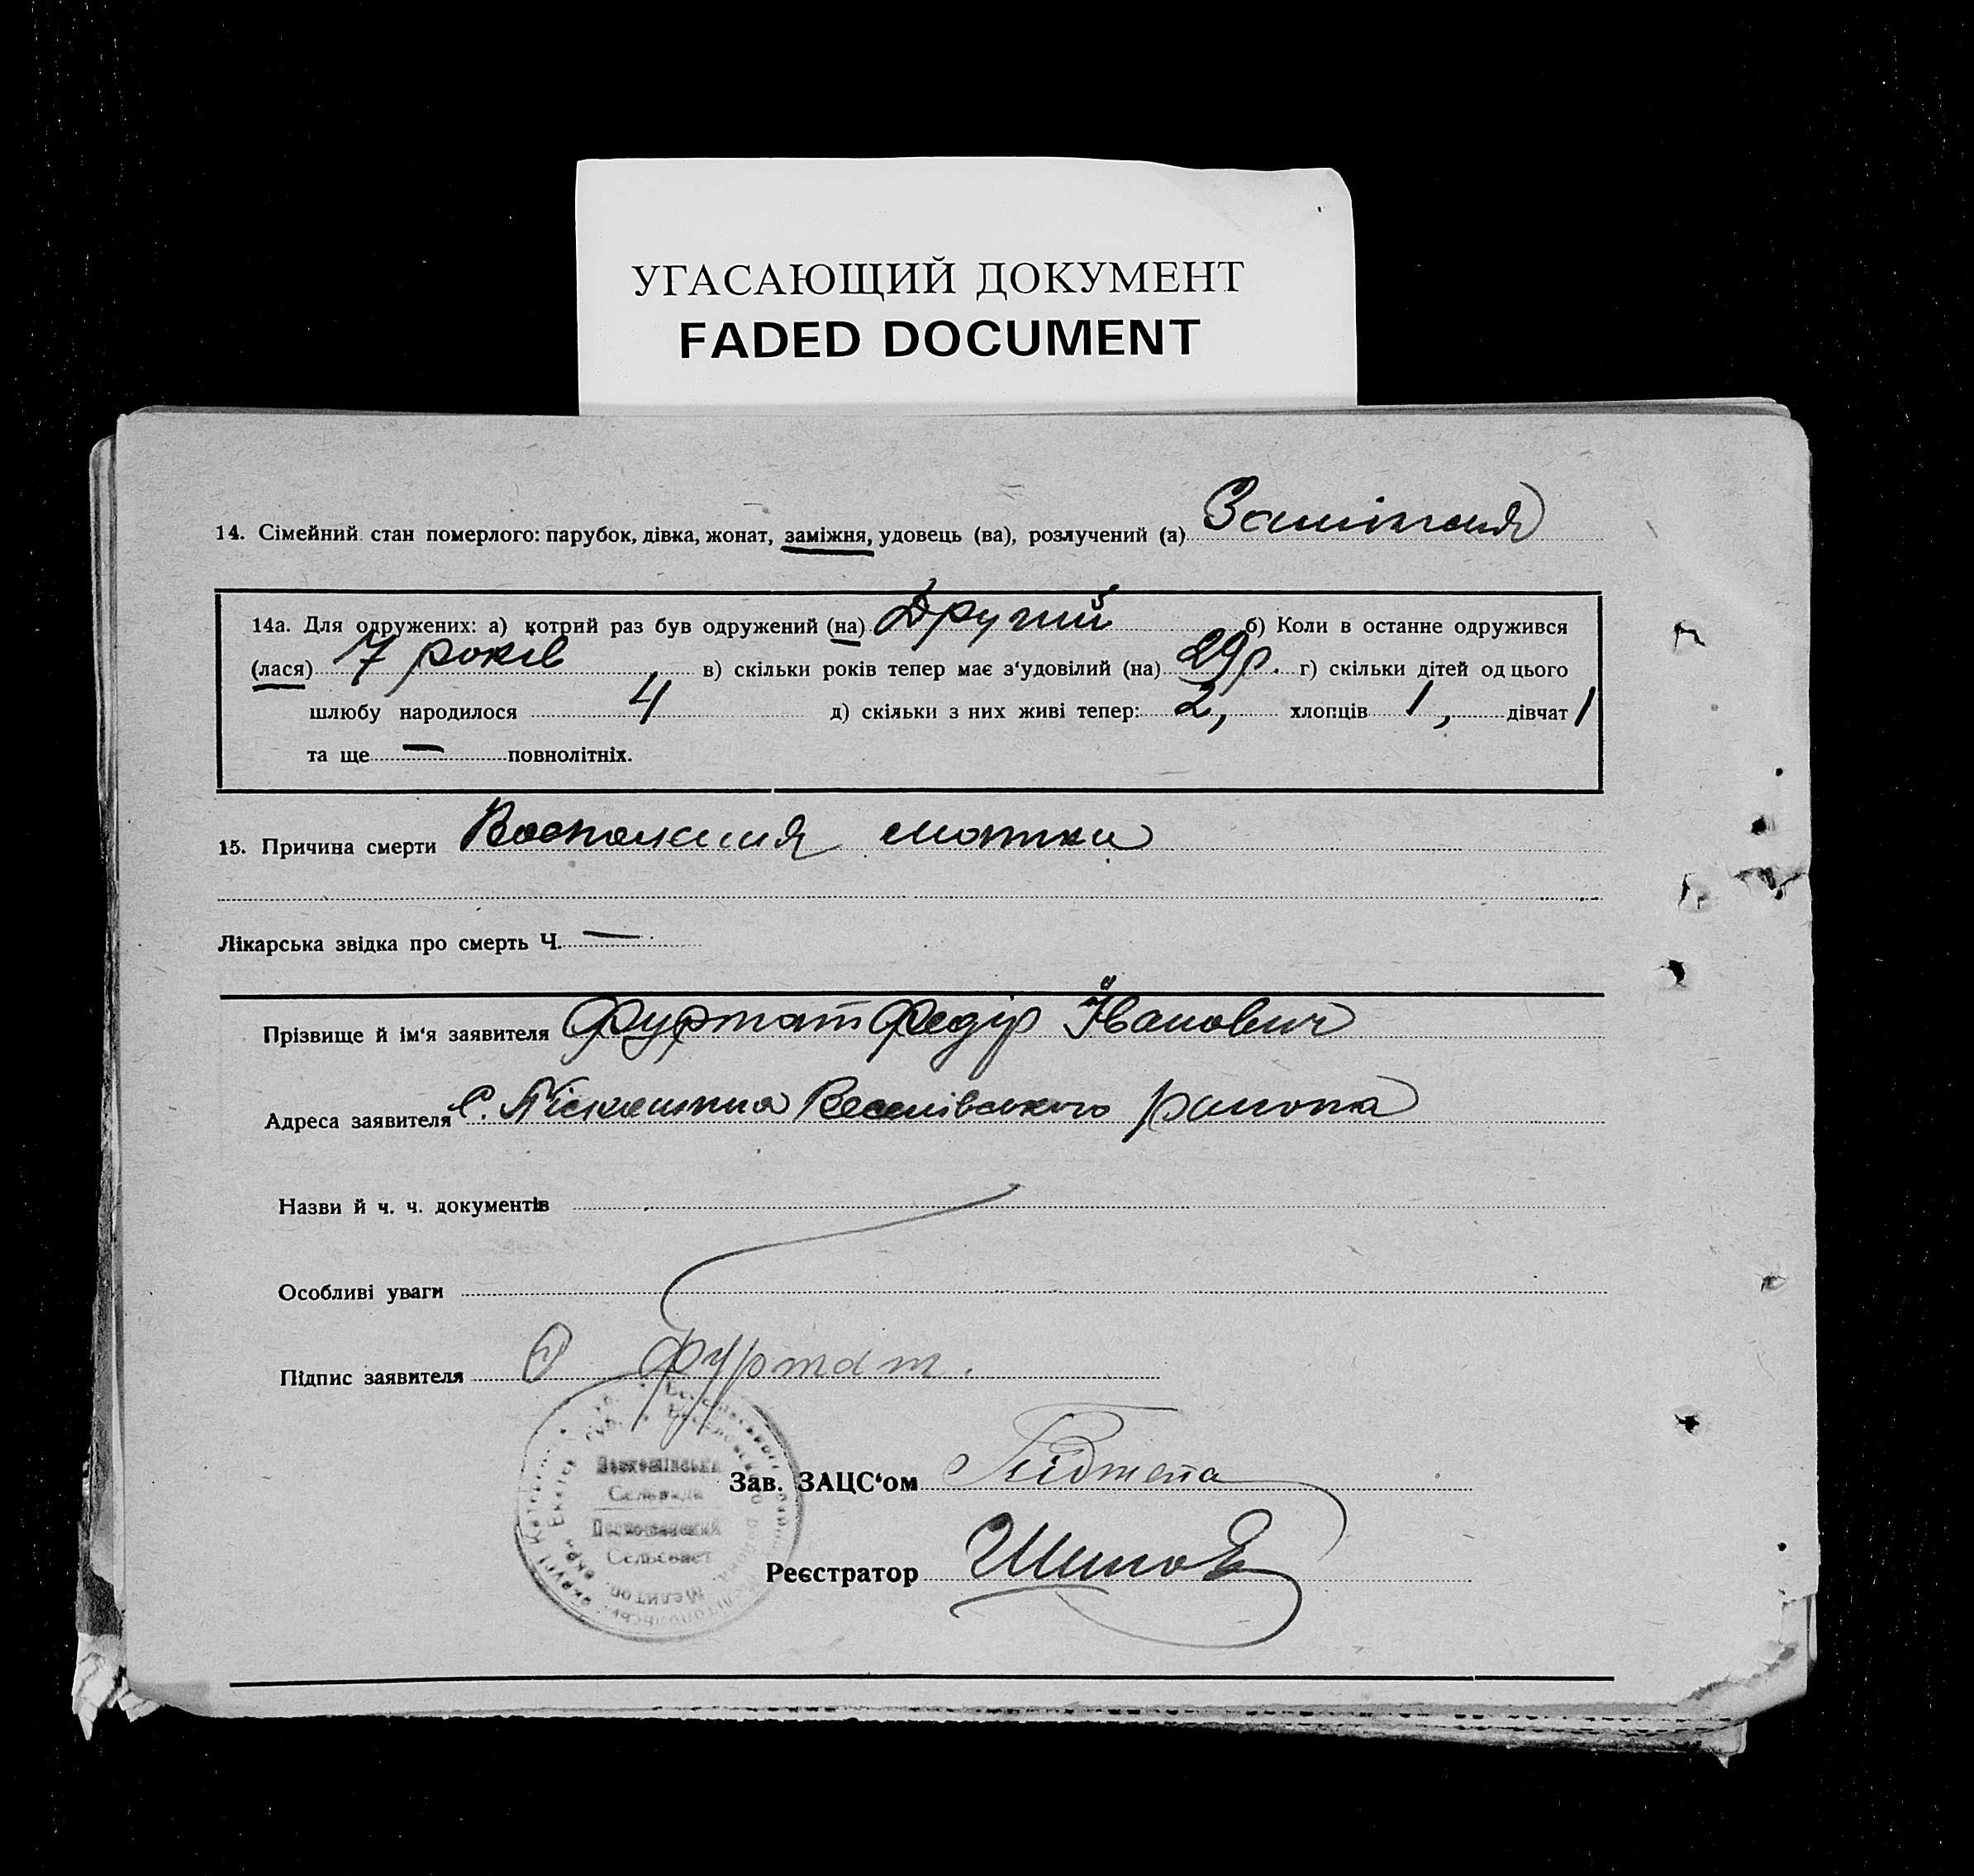 УГАСАЮЩИЙ ДОКУМЕНТ
FADED DOCUMENT
14. Сімейний стан померлого: парубок, дівка, жонат, заміжня, удовець (ва), розлучений (а) Заміжня
14а. Для одружених: а) котрий раз був одружений (на) Другий б) Коли в останне одружився
(лася) 7 років в) скільки років тепер має з‘удовілий (на) 29 р. г) скільки дітей од цього
шлюбу народилося 4 д) скільки з них живі тепер: 2, хлопців 1, дівчат 1
та ще — повнолітніх.
15. Причина смерти Воспаления матки
Лікарська звідка про смерть Ч. —
Прізвище й ім‘я заявителя Фуртат Федір Їванович
Адреса заявителя С. Веселівського района
Назви й ч. ч. документів
Особливі уваги
Підпис заявителя Фуртат.
Сельрада
Сельсовет
Зав. ЗАЦС‘ом
Реєстратор